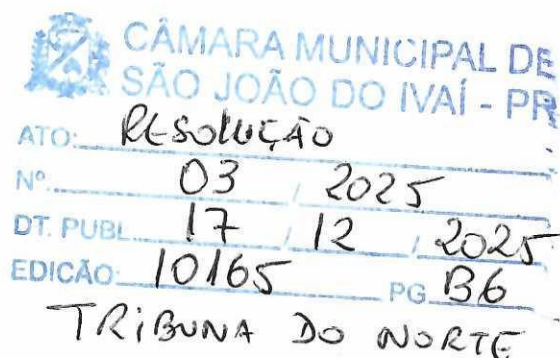 CÂMARA MUNICIPAL DE
SÃO JOÃO DO IVAÍ - PR
ATO: RESOLUÇÃO
Nº. 03 / 2025
DT. PUBL. 17 / 12 / 2025
EDICÃO: 10165 PG. B6
TRIBUNA DO NORTE